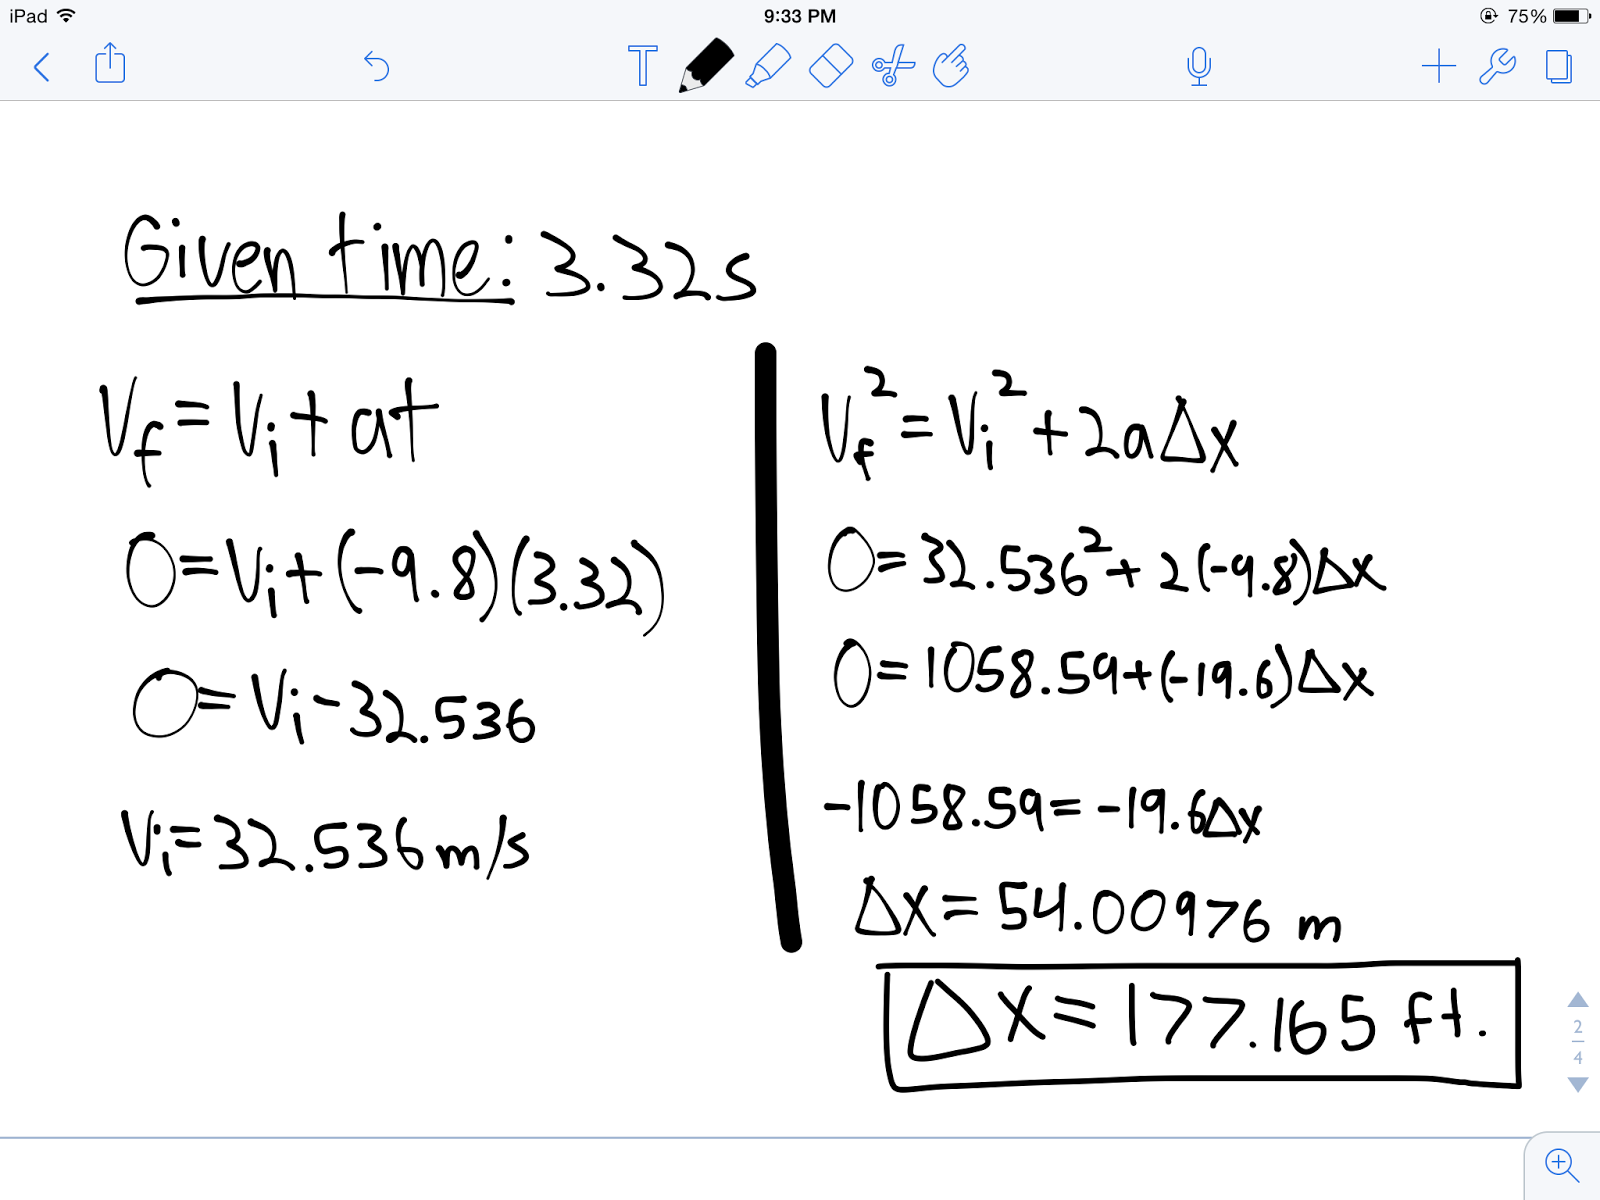 iPad 9:33 PM 75%
T
Given time: 3.32s
Vf = Vi + at
0 = Vi + (-9.8)(3.32)
0 = Vi - 32.536
Vi = 32.536 m/s
Vf² = Vi² + 2aΔx
0 = 32.536² + 2(-9.8)Δx
0 = 1058.59 + (-19.6)Δx
-1058.59 = -19.6Δx
Δx = 54.00976 m
Δx = 177.165 ft.
2
4